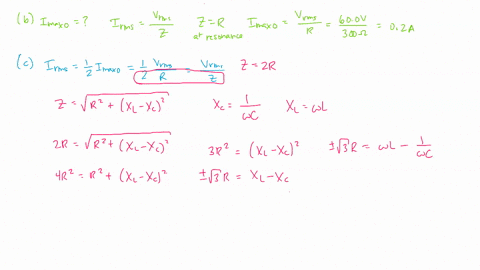 (b) I_max0 = ? I_rms = V_rms / Z Z = R at resonance I_max0 = V_rms / R = 60.0V / 300Ω = 0.2A
(c) I_rms = 1/2 I_max0 = 1/2 V_rms / R = V_rms / Z Z = 2R
Z = √(R² + (X_L - X_C)²) X_C = 1 / ωC X_L = ωL
2R = √(R² + (X_L - X_C)²) 3R² = (X_L - X_C)² ±√3 R = ωL - 1 / ωC
4R² = R² + (X_L - X_C)² ±√3 R = X_L - X_C